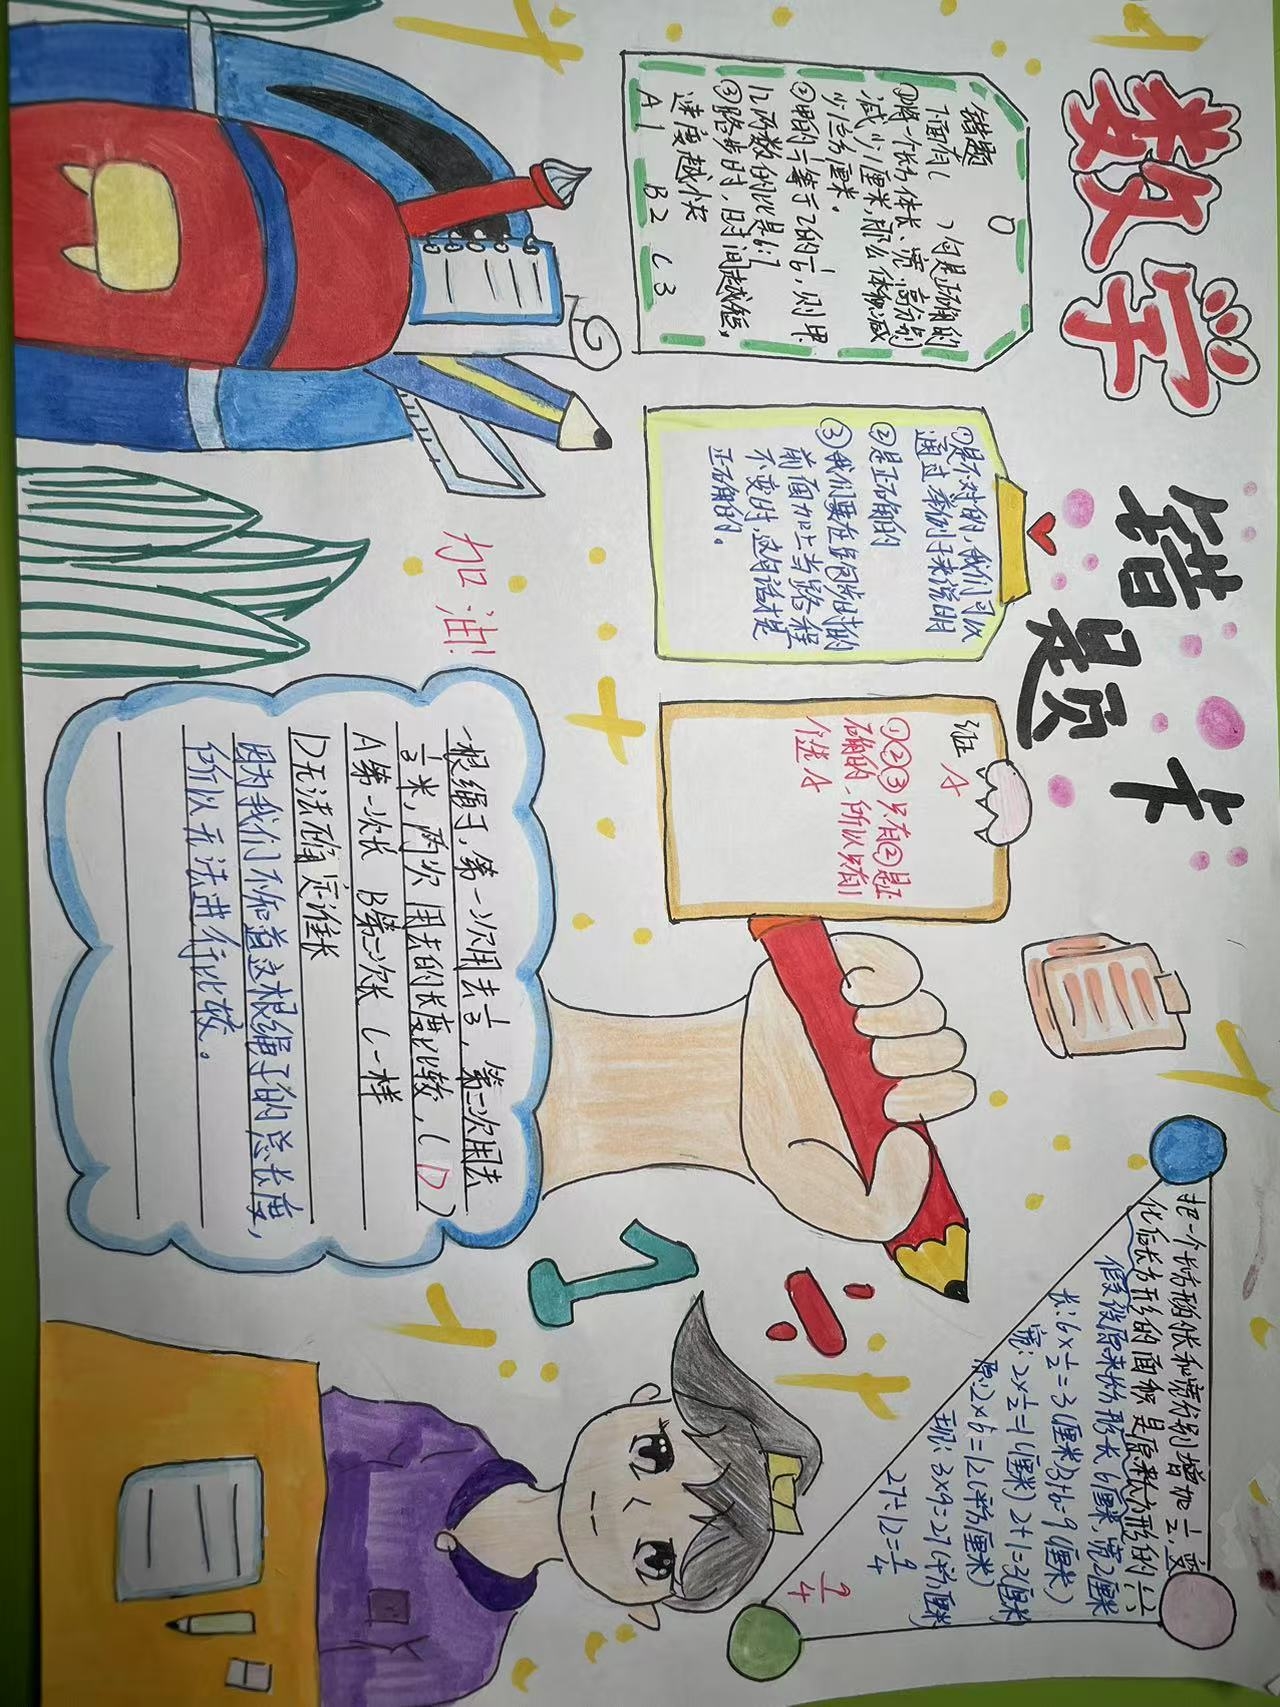 数学
错题卡
错题
下面有( )句是正确的
①将一个长方体长、宽、高分别
减少1厘米,那么体积减
少1立方厘米。
12两数的比是6:7
③跑步时,用时间越短,
速度越快
A 1 B 2 C 3
①是不对的,我们可以
通过举例子来说明
②是正确的
③我们要在跑步时的
前面加上当路程
不变时,这句话才是
正确的。
证 A
①②③只有②是正
确的,所以只有1
个选A
加油!
一根绳子,第一次用去1/3,第二次用去
1/3米,两次用去的长度比较,(D)
A第一次长 B第二次长 C一样
D无法确定谁长
因为我们不知道这根绳子的总长度,
所以无法进行比较。
把一个长方形的长和宽分别增加1/2,变
化后长方形的面积是原来长方形的( )
假设原来长方形长6厘米,宽2厘米
长:6×1/2=3(厘米)3+6=9(厘米)
宽:2×1/2=1(厘米) 2+1=3(厘米)
原:2×6=12(平方厘米)
现:3×9=27(平方厘米)
27÷12=9/4
9/4